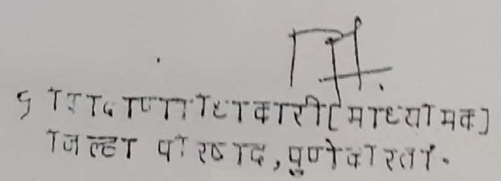 शिक्षणाधिकारी (माध्यमिक)
जिल्हा परिषद, पुणे करिता.